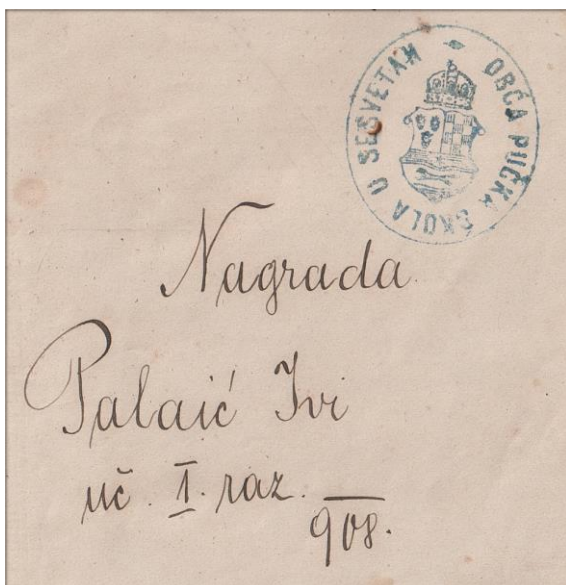 OBĆA PUČKA ŠKOLA U SESVETAH
Nagrada
Palaić Ivi
uč. I. raz.
908.